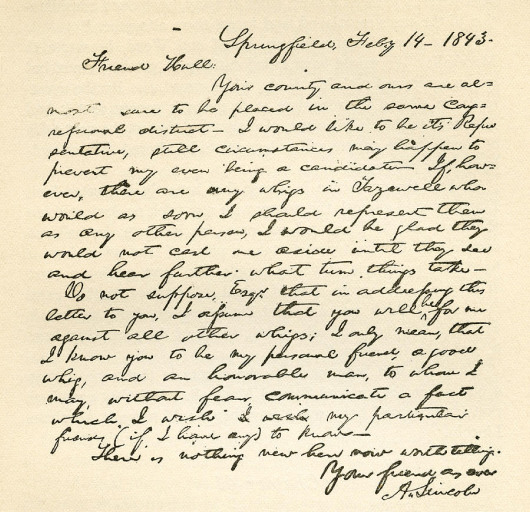 Springfield, Feby 14- 1843-
Friend Hull:
Your county and ours are al=
most sure to be placed in the same Con=
gressional district- I would like to be its Repre
sentative, still circumstances may happen to
prevent my even being a candidate- If, how=
ever, there are any whigs in Tazewell who
would as soon I should represent them
as any other person, I would be glad they
would not cast me aside until they see
and hear further what turn things take-
Do not suppose, Esqr. that in addressing this
letter to you, I assume that you will be for me
against all other whigs; I only mean, that
I know you to be my personal friend, a good
whig, and an honorable man, to whom I
may, without fear, communicate a fact
which I wish I wish my particular
friends (if I have any) to know-
There is nothing new here now worth telling.
Your friend as ever
A. Lincoln